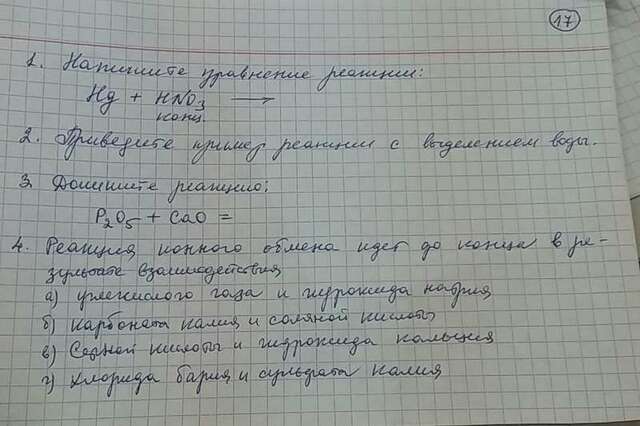 17
1. Напишите уравнение реакции:
Hg + HNO3 →
конц.
2. Приведите пример реакции с выделением воды.
3. Допишите реакцию:
P2O5 + CaO =
4. Реакция ионного обмена идет до конца в ре-
зультате взаимодействия
а) углекислого газа и гидроксида натрия
б) карбоната калия и соляной кислоты
в) Серной кислоты и гидроксида кальция
г) хлорида бария и сульфата калия